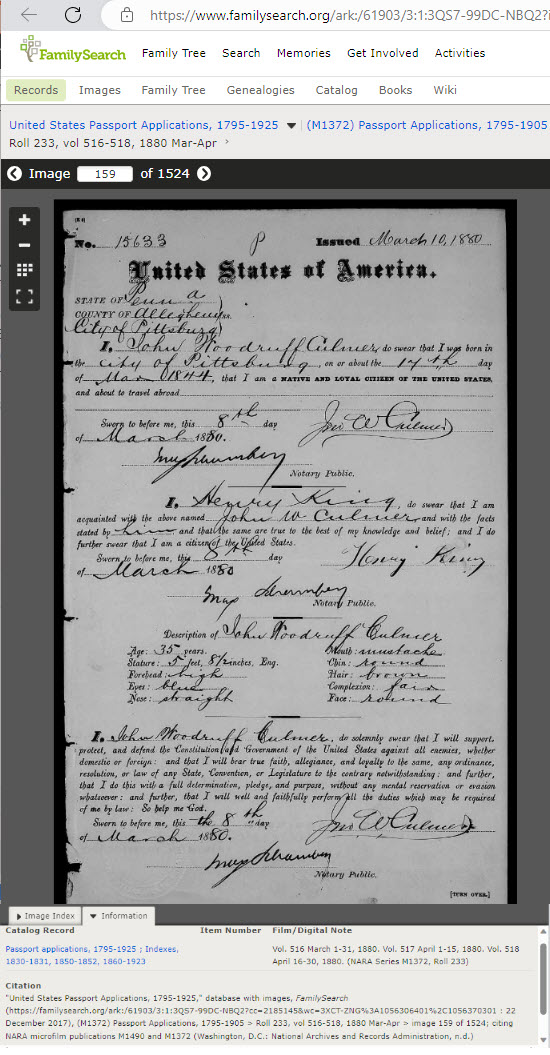 https://www.familysearch.org/ark:/61903/3:1:3QS7-99DC-NBQ2?i
FamilySearch Family Tree Search Memories Get Involved Activities
Records Images Family Tree Genealogies Catalog Books Wiki
United States Passport Applications, 1795-1925 (M1372) Passport Applications, 1795-1905
Roll 233, vol 516-518, 1880 Mar-Apr
Image 159 of 1524
No. 15633 P Issued March 10, 1880
United States of America.
STATE OF Penn a
COUNTY OF Allegheny ss.
City of Pittsburg
I, John Woodruff Culmer, do swear that I was born in
the City of Pittsburg, on or about the 17th day
of Mar 1844, that I am a NATIVE AND LOYAL CITIZEN OF THE UNITED STATES,
and about to travel abroad
Sworn to before me, this 8th day
of March 1880.
Jno W Culmer
Notary Public.
I, Henry King, do swear that I am
acquainted with the above named John W Culmer and with the facts
stated by him and that the same are true to the best of my knowledge and belief; and I do
further swear that I am a citizen of the United States.
Sworn to before me, this 8th day
of March 1880
Henry King
Notary Public.
Description of John Woodruff Culmer
Age: 35 years. Mouth: mustache
Stature: 5 feet, 8½ inches, Eng. Chin: round
Forehead: high Hair: brown
Eyes: blue Complexion: fair
Nose: straight Face: round
I, John Woodruff Culmer, do solemnly swear that I will support,
protect, and defend the Constitution and Government of the United States against all enemies, whether
domestic or foreign: and that I will bear true faith, allegiance, and loyalty to the same, any ordinance,
resolution, or law of any State, Convention, or Legislature to the contrary notwithstanding: and further,
that I do this with a full determination, pledge, and purpose, without any mental reservation or evasion
whatsoever: and further, that I will well and faithfully perform all the duties which may be required
of me by law: So help me God.
Sworn to before me, this the 8th day
of March 1880.
Jno W Culmer
Notary Public.
[TURN OVER.]
Image Index Information
Catalog Record Item Number Film/Digital Note
Passport applications, 1795-1925 ; Indexes, Vol. 516 March 1-31, 1880. Vol. 517 April 1-15, 1880. Vol. 518
1830-1831, 1850-1852, 1860-1923 April 16-30, 1880. (NARA Series M1372, Roll 233)
Citation
"United States Passport Applications, 1795-1925," database with images, FamilySearch
(https://familysearch.org/ark:/61903/3:1:3QS7-99DC-NBQ2?cc=2185145&wc=3XCT-ZNG%3A1056306401%2C1056370301 : 22
December 2017), (M1372) Passport Applications, 1795-1905 > Roll 233, vol 516-518, 1880 Mar-Apr > image 159 of 1524; citing
NARA microfilm publications M1490 and M1372 (Washington, D.C.: National Archives and Records Administration, n.d.)